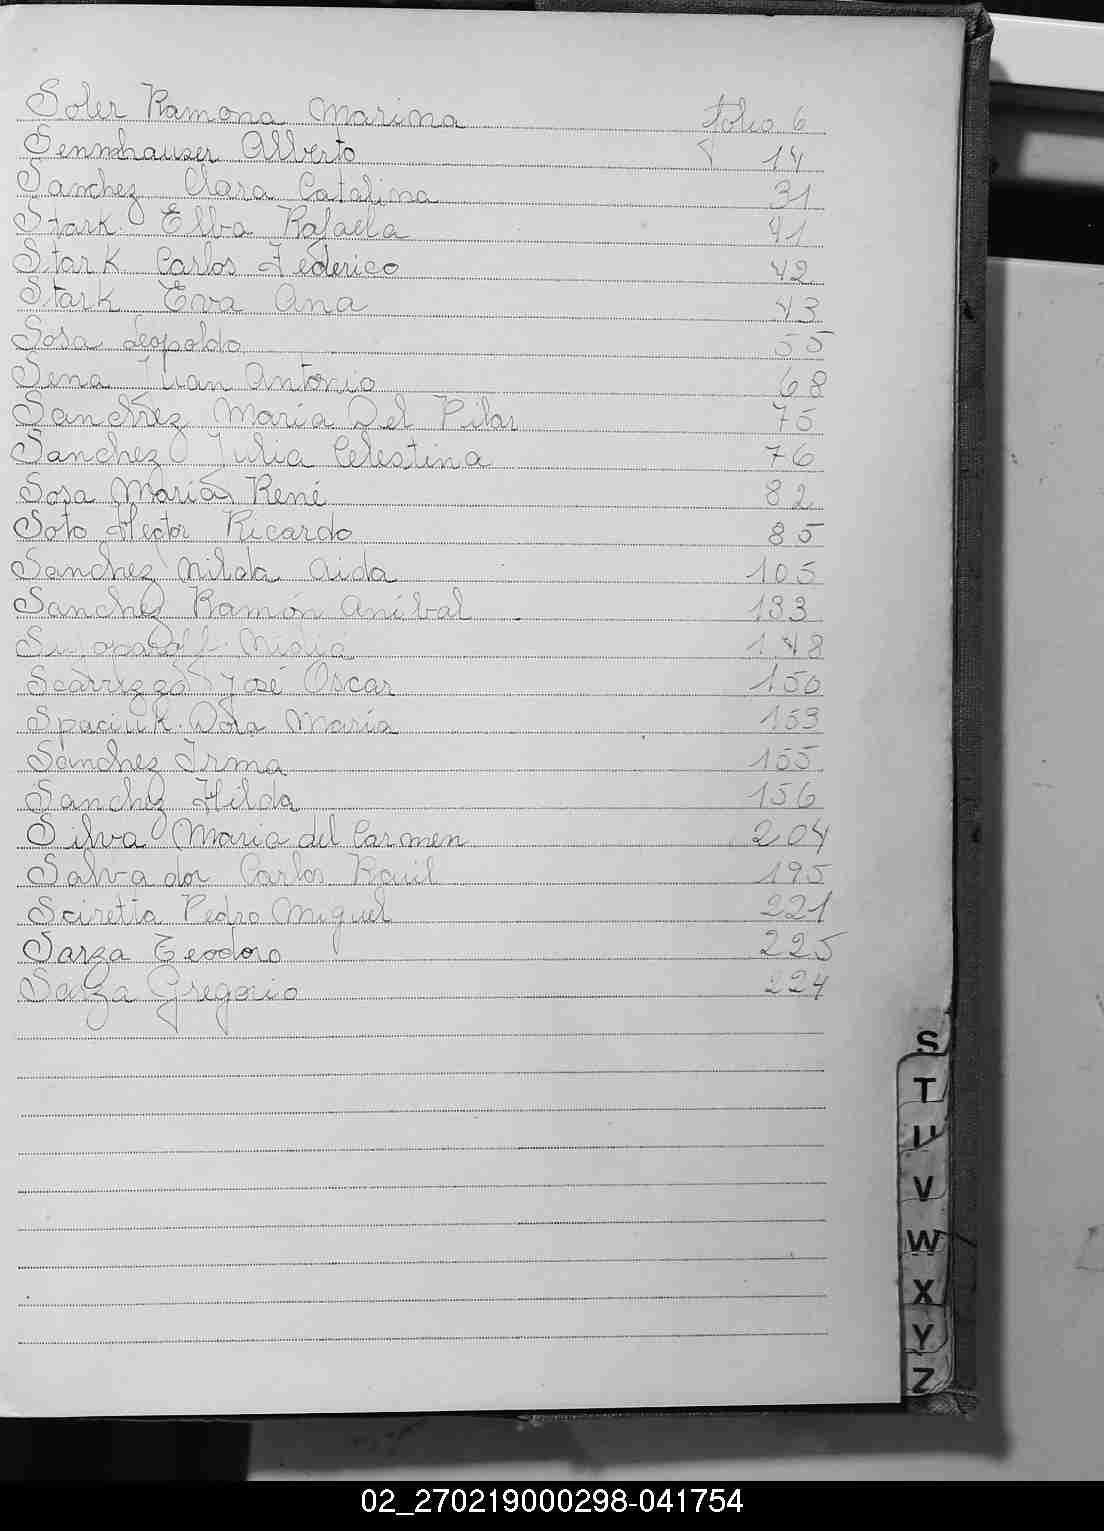 Soler Ramona Marina folio 6
Sennhauser Alberto 14
Sanchez Clara Catalina 31
Stark Elba Rafaela 41
Stark Carlos Federico 42
Stark Eva Ana 43
Sosa Leopoldo 55
Sena Juan Antonio 68
Sanchez Maria Del Pilar 75
Sanchez Julia Celestina 76
Sosa Maria René 82
Soto Hector Ricardo 85
Sanchez Nilda Aida 105
Sanchez Ramón Anibal 133
148
José Oscar 150
Spaciuk Dora Maria 153
Sanchez Irma 155
Sanchez Hilda 156
Silva Maria del Carmen 204
Salvador Carlos Raúl 195
Sciretta Pedro Miguel 221
Sarza Teodoro 225
Sarza Gregorio 224
S
T
U
V
W
X
Y
Z
02_270219000298-041754